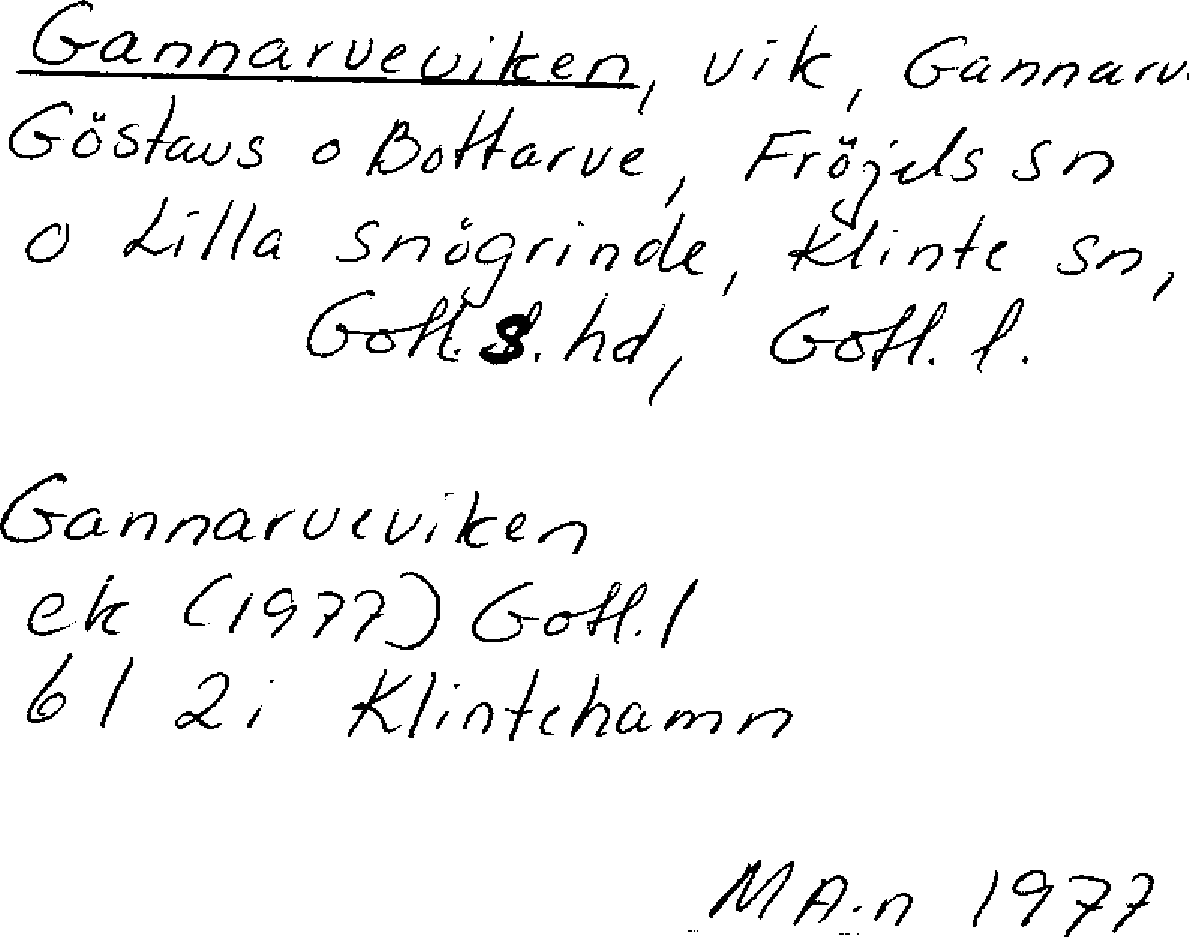 Gannarveviken, vik, Gannarv.
Göstavs o Bottarve, Fröjels sn
o Lilla Snögrinde, Klinte sn,
Gotl. S. hd, Gotl. l.
Gannarveviken
ek (1977) Gotl. l
6 I 2i Klintehamn
MA.n 1977